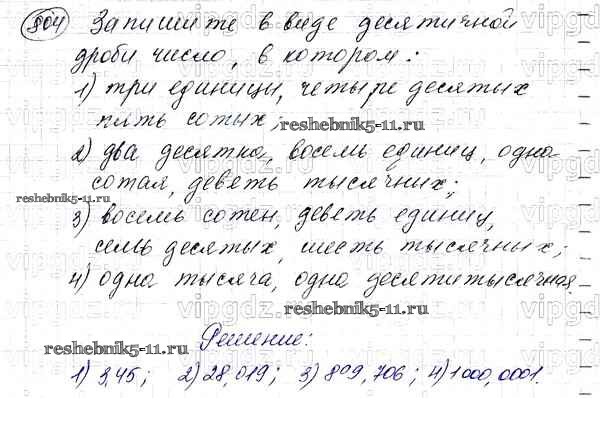 804 Запишите в виде десятичной
дроби число, в котором:
1) три единицы, четыре десятых
пять сотых;
reshebnik5-11.ru
2) два десятка, восемь единиц, одна
сотая, девять тысячных;
reshebnik5-11.ru
3) восемь сотен, девять единиц,
семь десятых, шесть тысячных;
4) одна тысяча, одна десятитысячная.
reshebnik5-11.ru
Решение:
reshebnik5-11.ru
1) 3,45; 2) 28,019; 3) 809,706; 4) 1000,0001.